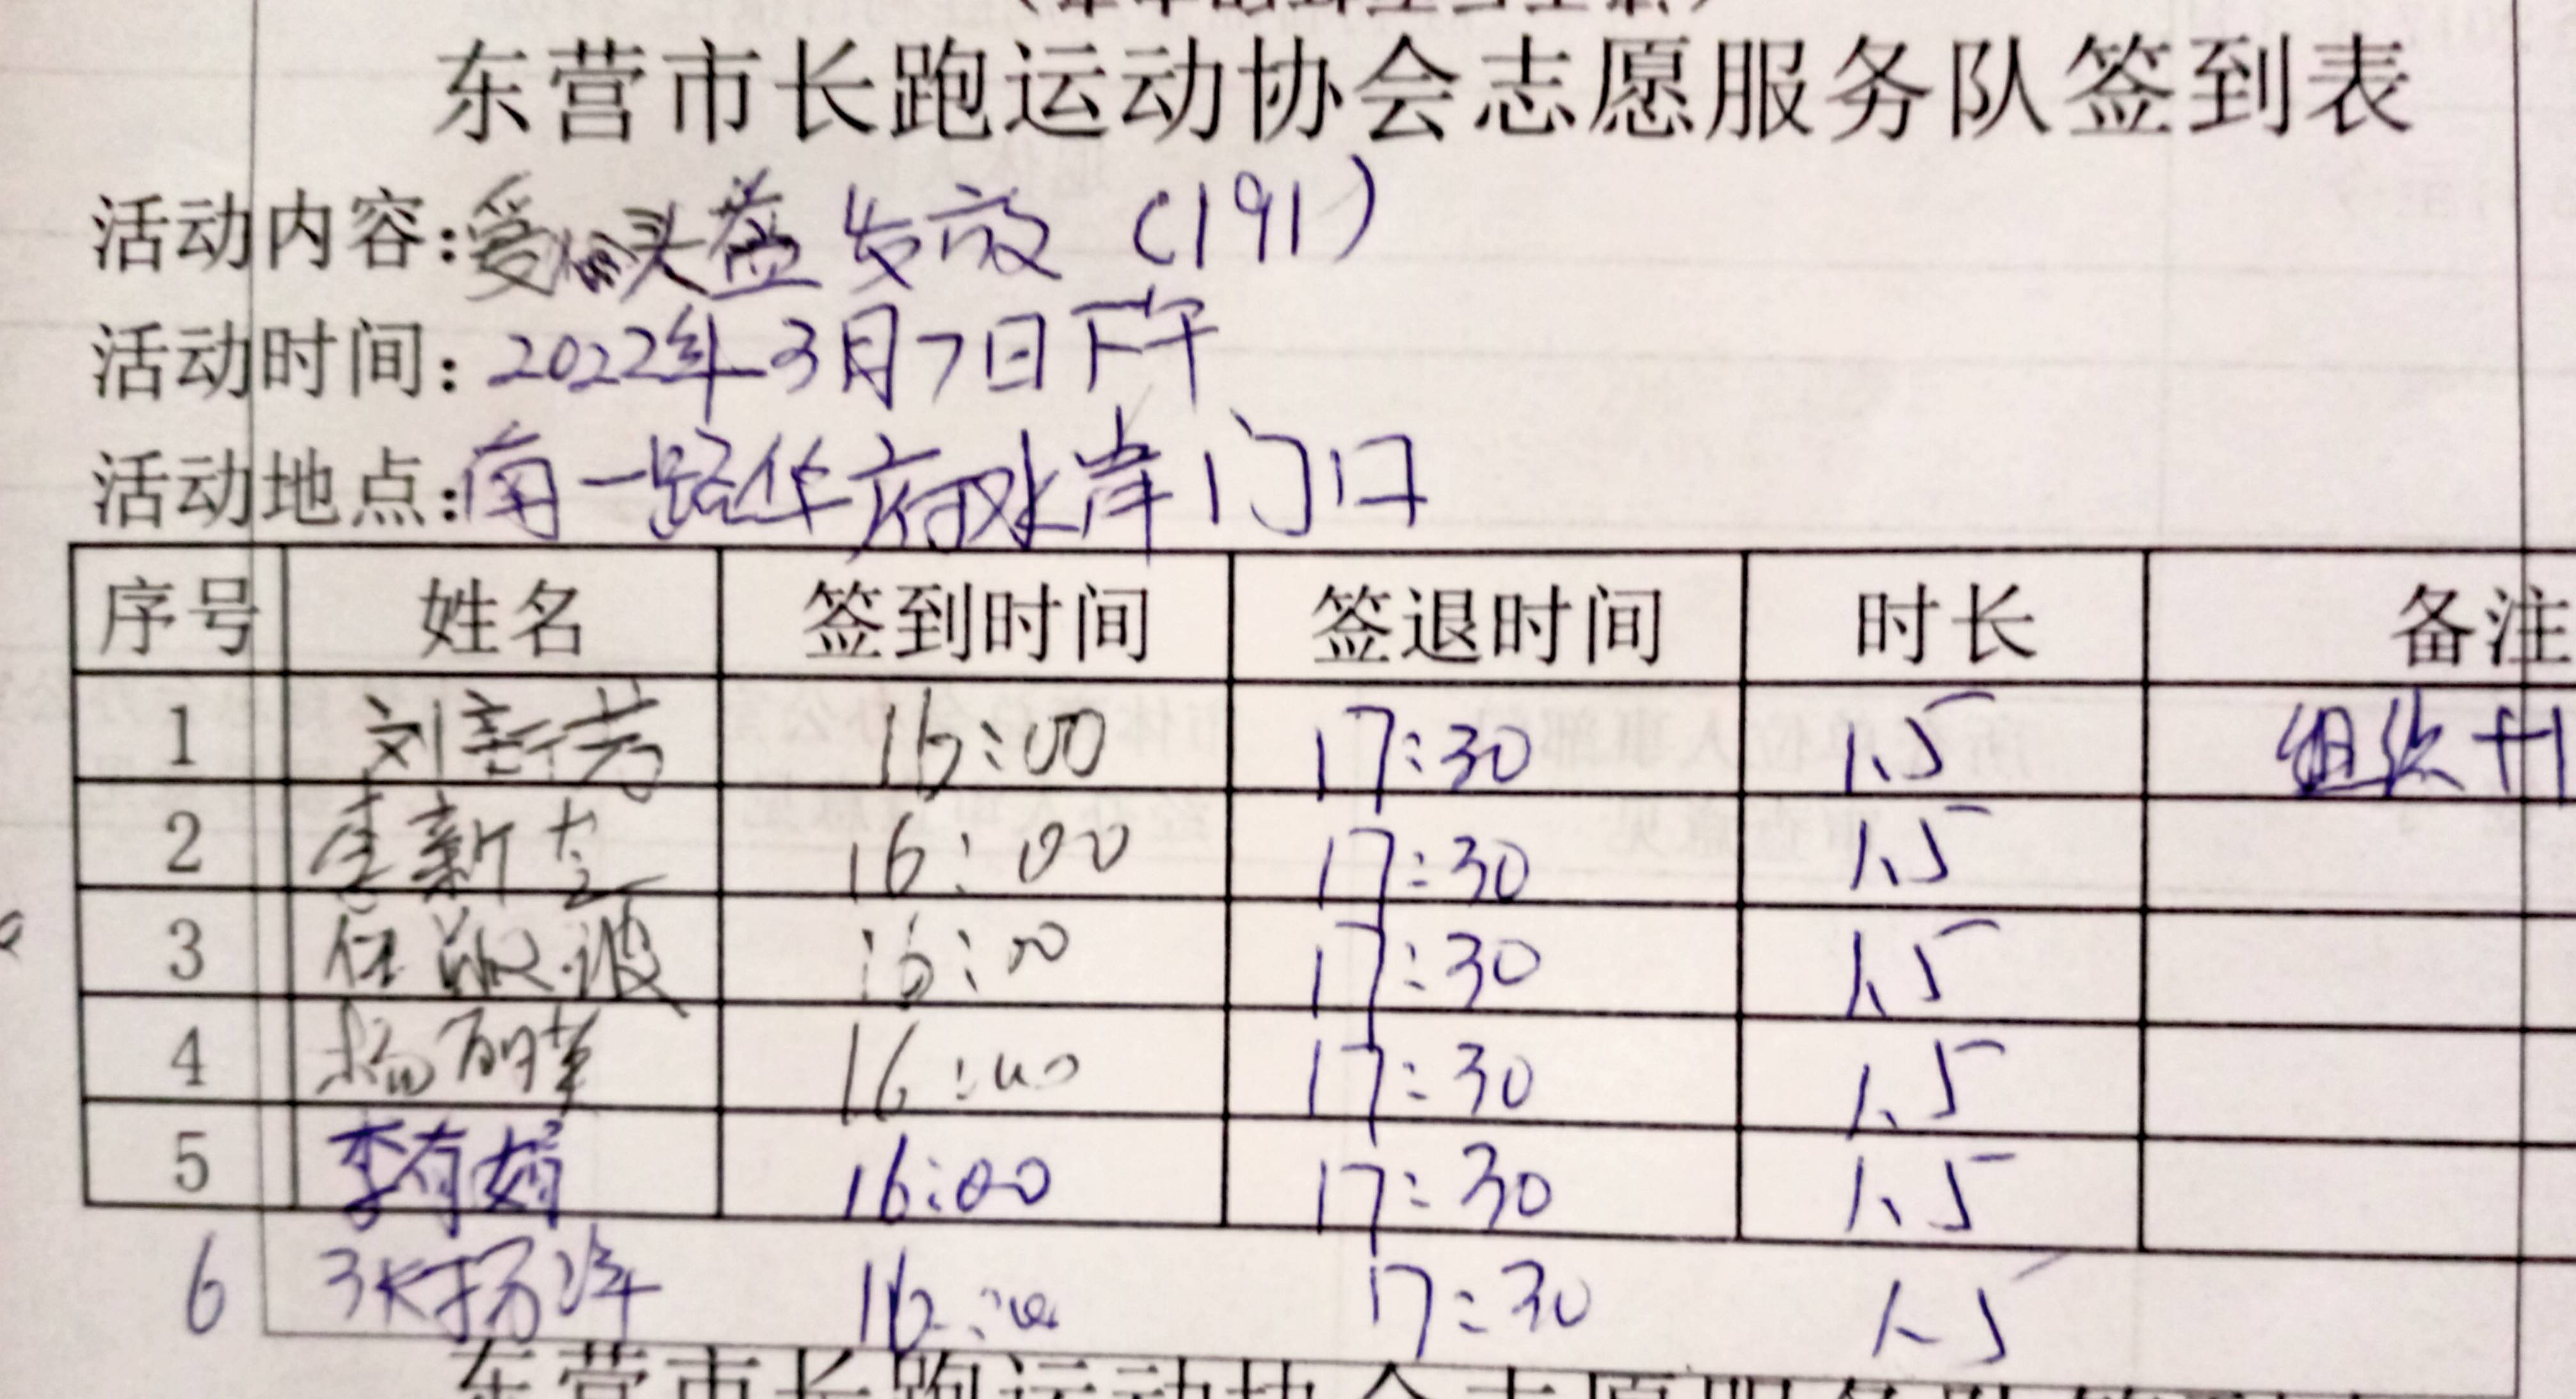 东营市长跑运动协会志愿服务队签到表
活动内容:爱心头盔发放(191)
活动时间:2022年3月7日下午
活动地点:南一路华府水岸门口
序号 姓名 签到时间 签退时间 时长 备注
1 刘新芳 16:00 17:30 1.5
2 李新 16:00 17:30 1.5
3 任淑波 16:00 17:30 1.5
4 杨丽华 16:00 17:30 1.5
5 李有娟 16:00 17:30 1.5
6 张扬洋 16:00 17:30 1.5
东营市长跑运动协会志愿服务队